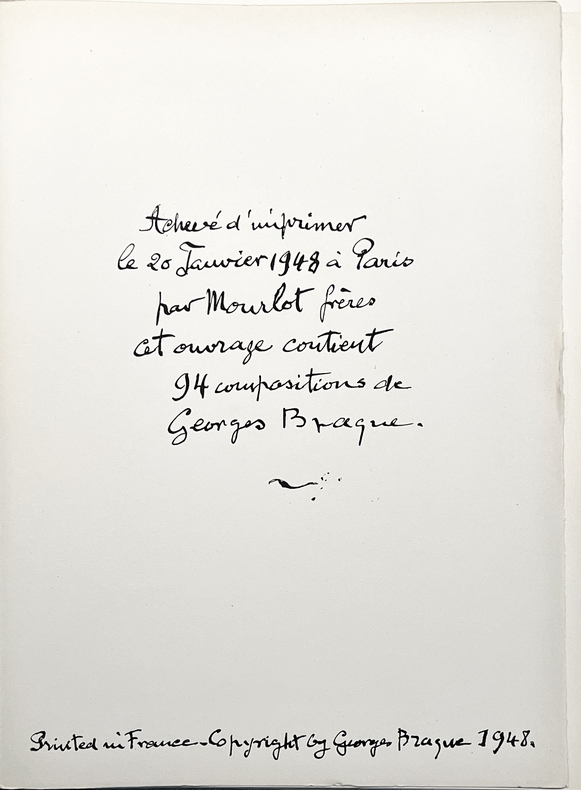 Achevé d'imprimer
le 20 Janvier 1948 à Paris
par Mourlot frères
cet ouvrage contient
94 compositions de
Georges Braque.
Printed in France - Copyright by Georges Braque 1948.